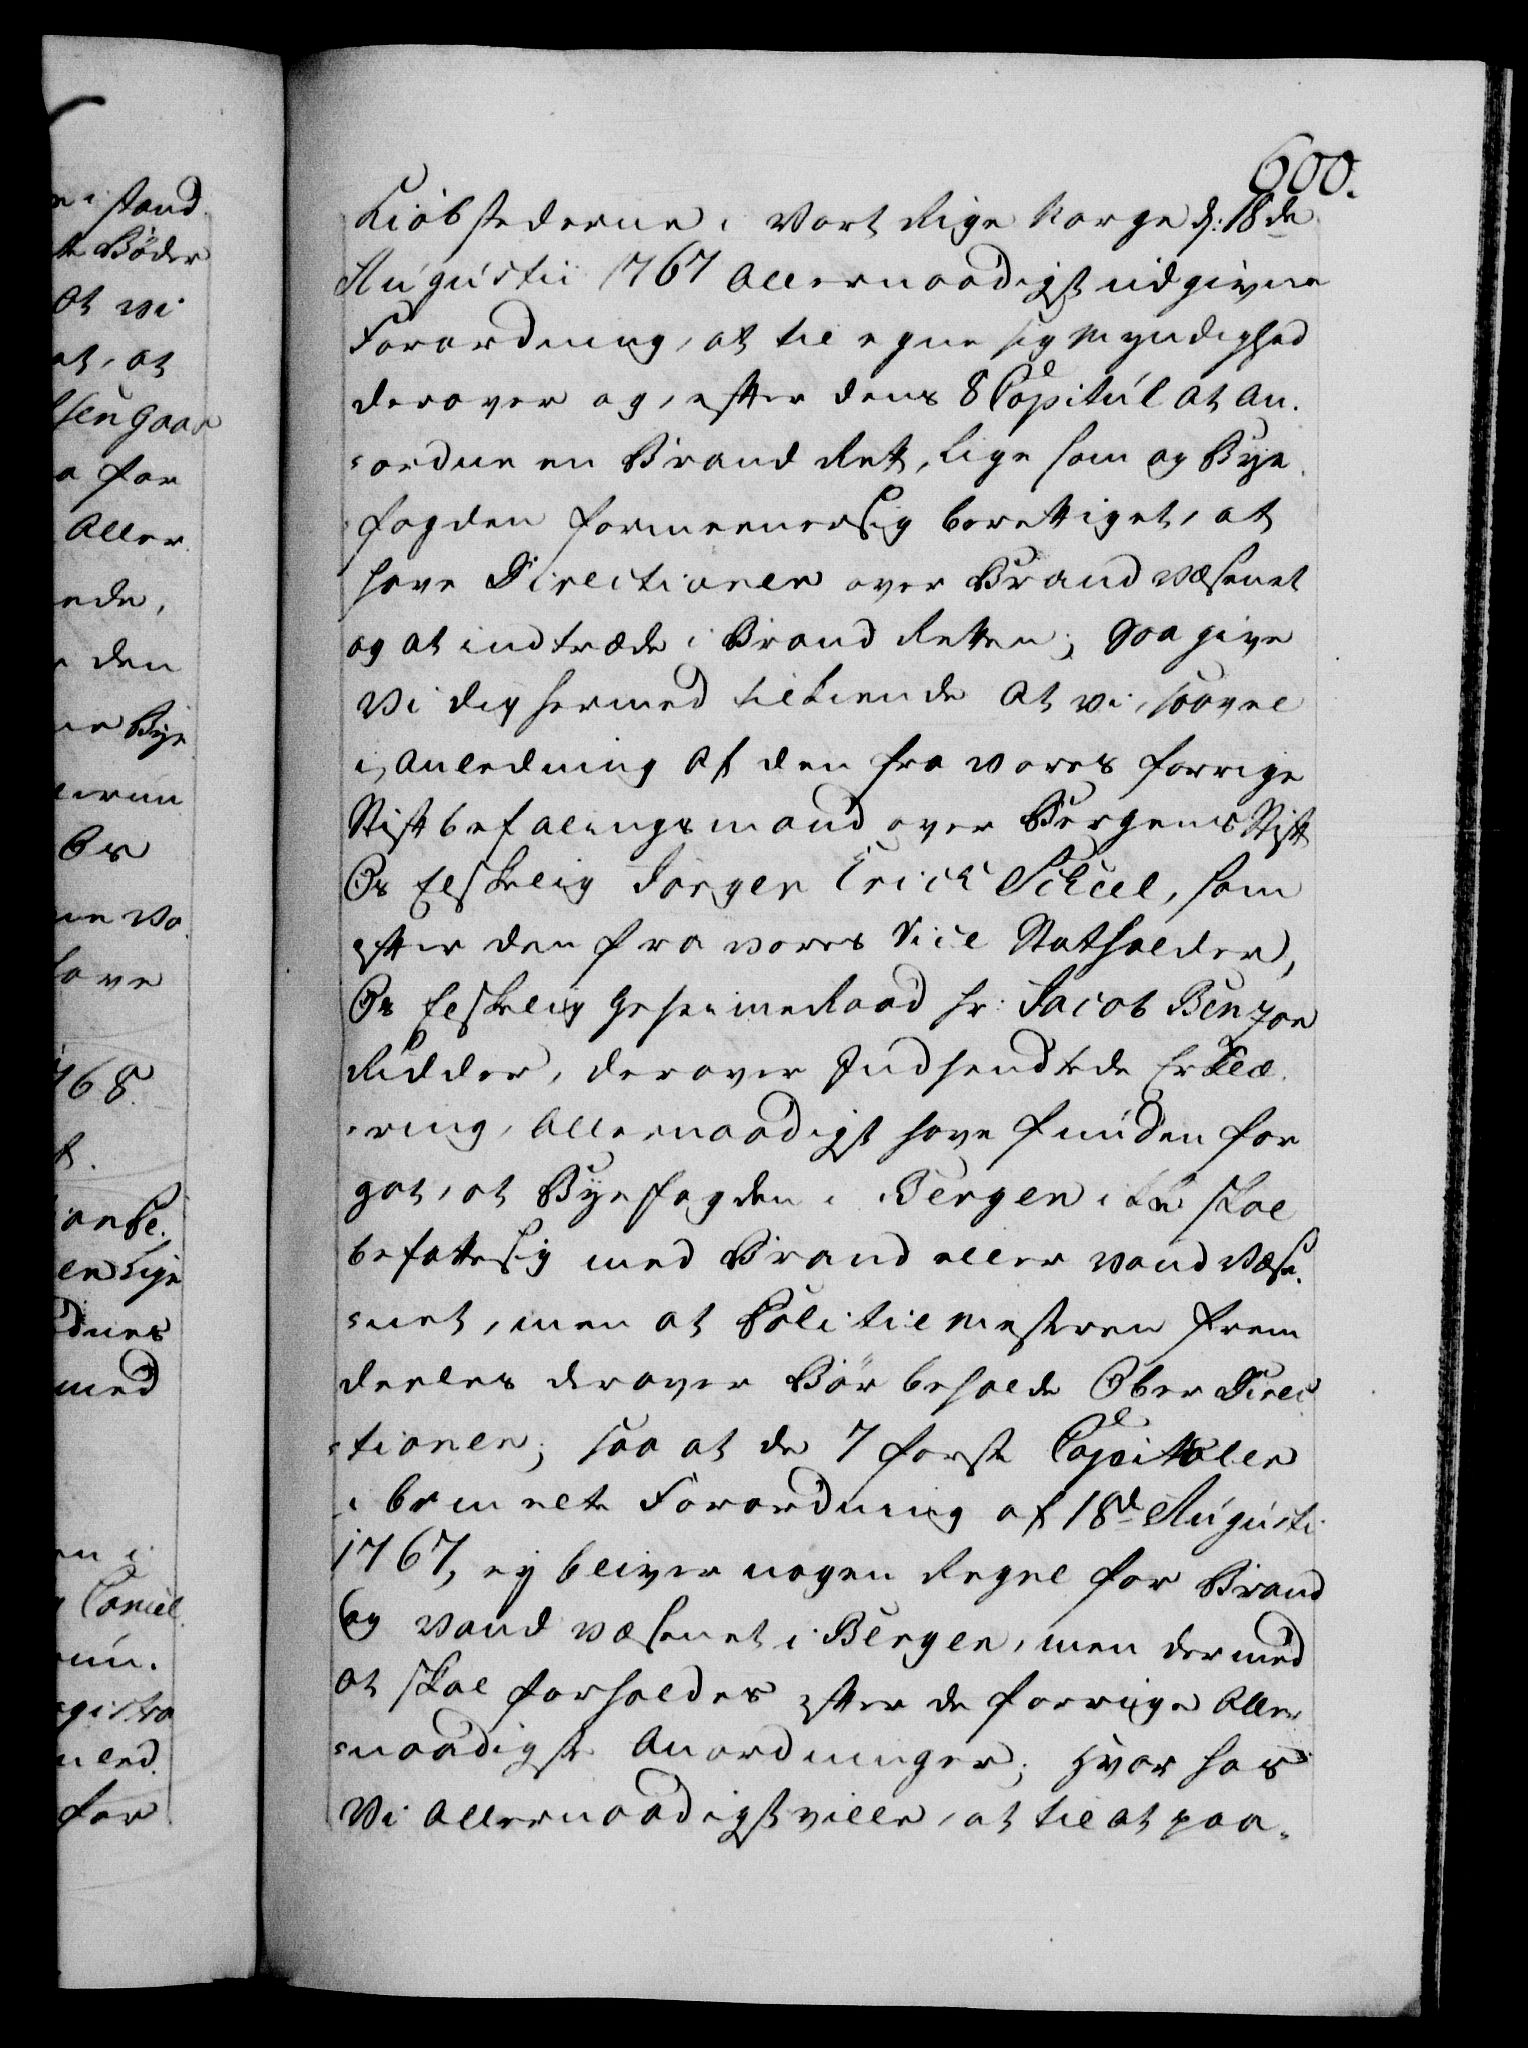 600.
Kiøbstederne i Vort Rige Norge d: 18de
Augustii 1767 Allernaadigst udgivne
Forordning, at til egne sig Myndighed
derover og, efter dens 8de Capitul at an-
=ordne en Brand Ret, lige som og Bye
=fogden formeener sig berettiget, at
have Directionen over Brand Væsenet
og at indtræde i Brand Retten; Saa give
Vi dig hermed tilkiende At vi, saavel
i Anledning Af den fra vores forrige
Stiftbefalingsmand over Bergens Stift
Os Elskelig Jørgen Erich Scheel, som
efter den fra vores Vice Statholder,
Os Elskelig Geheimeraad Hr: Jacob Benzon
Ridder, derover Indsendte Erklæ-
=ring, Allernaadigst have funden for
got, at Byefogden i Bergen icke skal
befatte sig med Brand eller Vand Væse-
=net, men at Politiemesteren frem
deeles derover Bør beholde Ober Direc
=tionen; saa at de 7 første Capituler
i bemelte Forordning af 18de Augusti
1767, ey bliver nogen Regel for Brand
og Vand Væsenet i Bergen, men dermed
at skal forholdes efter de forrige Aller
=naadigste Anordninger; Hvorhos
Vi Allernaadigst ville, at til at paa-
n i stand
te Bøder
At vi
et, at
for
Aller
ede,
den
ne Bye
Os
ne Va
have
768.
med
en i
for